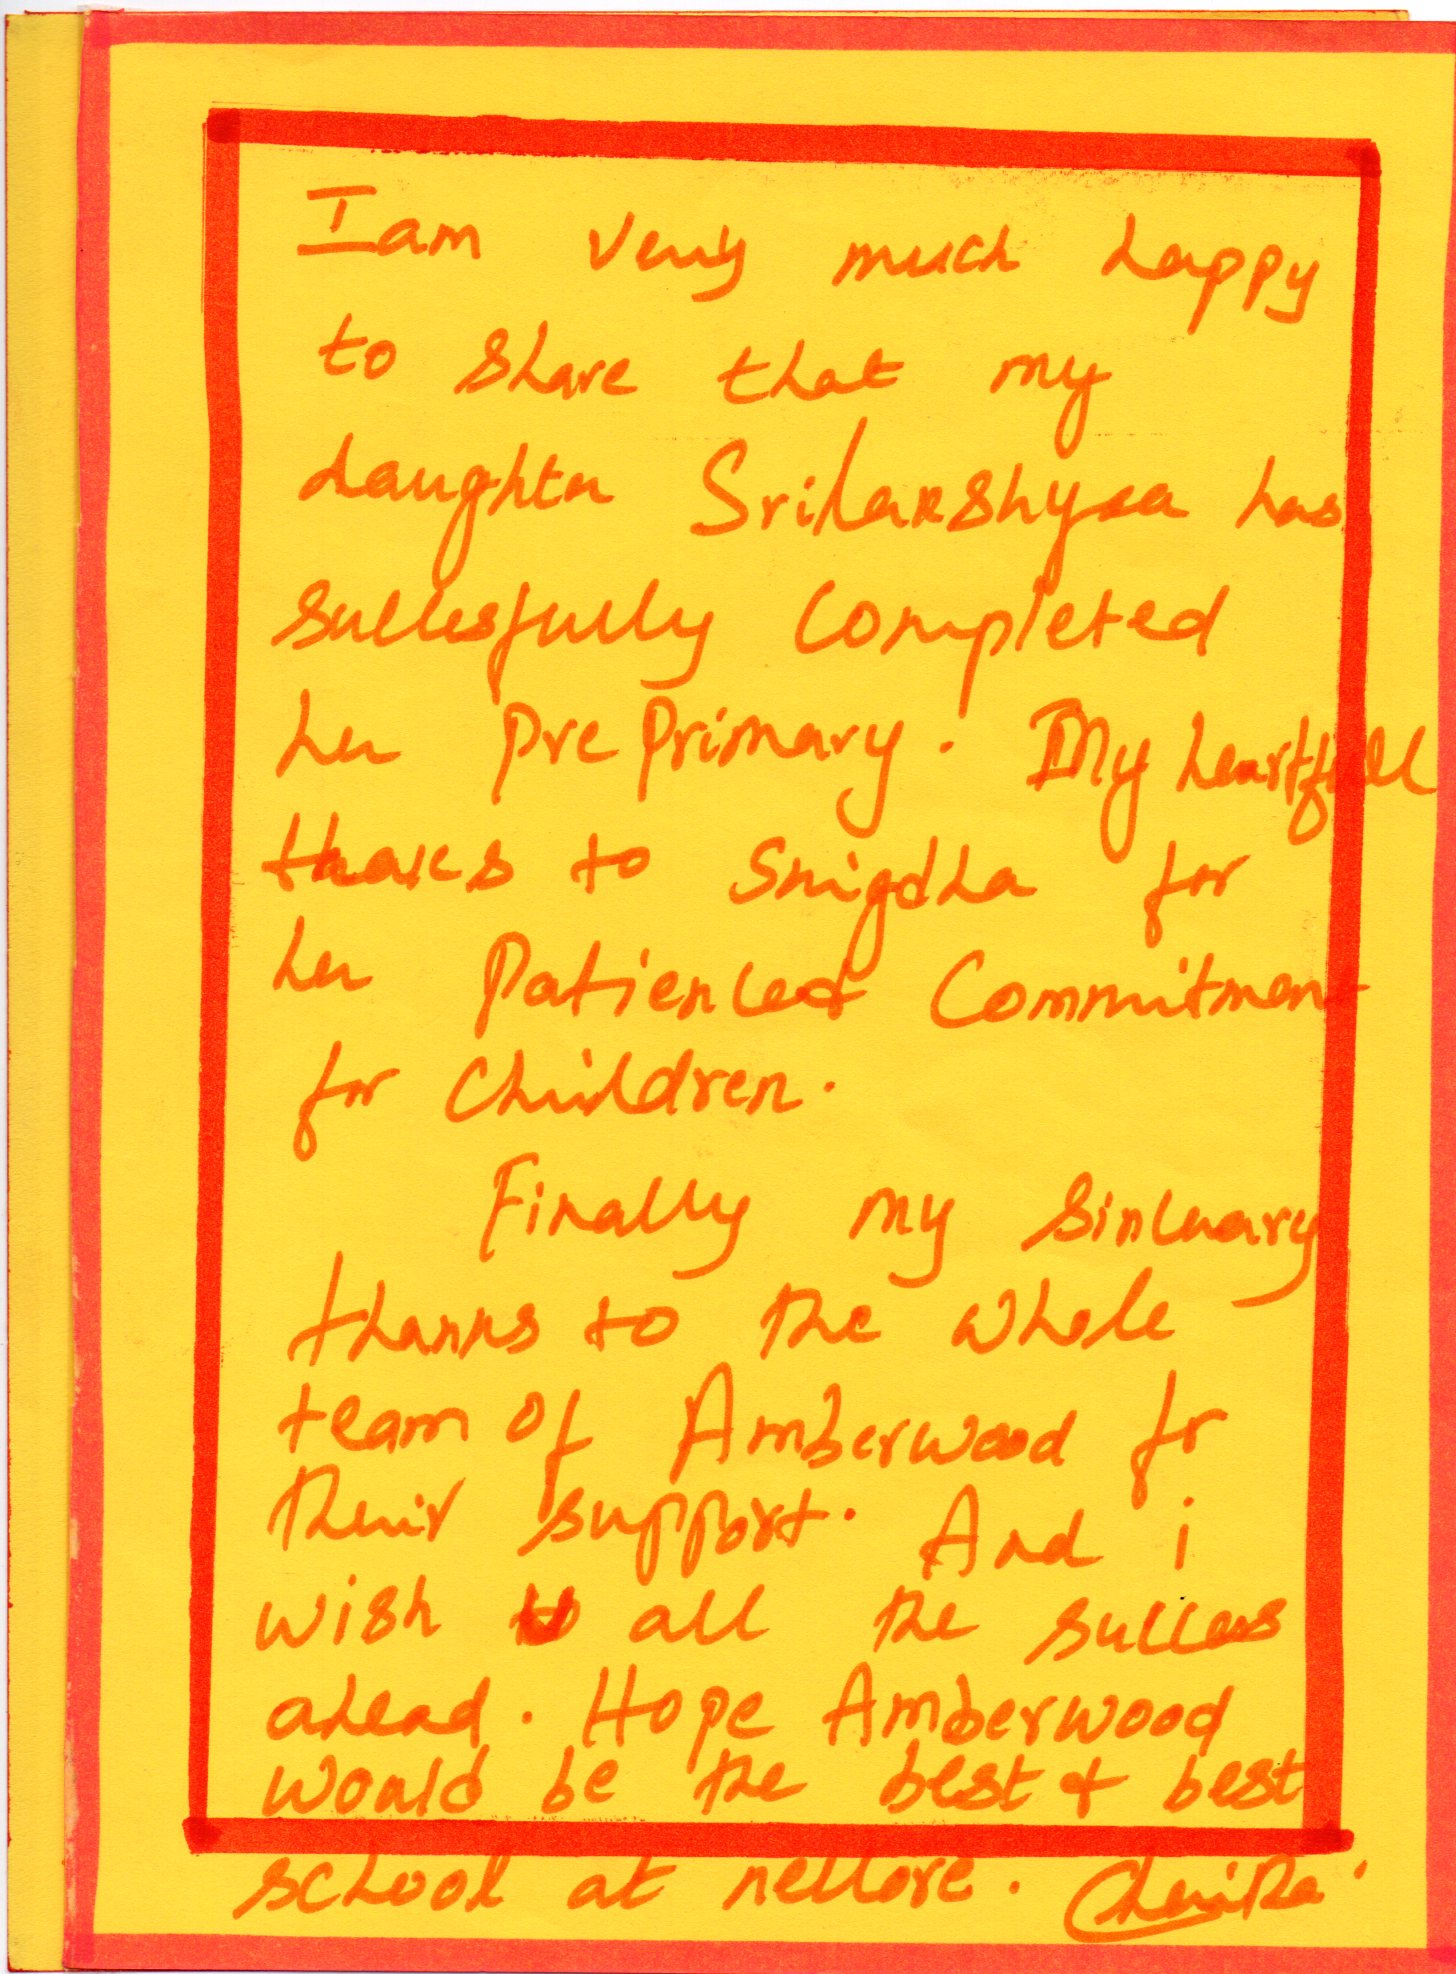 I am very much happy
to share that my
daughter Srilakshyaa has
succesfully completed
her pre primary. My heartfull
thanks to Snigdha for
her Patienced Commitment
for children.
Finally my sinceary
thanks to the whole
team of Amberwood for
their support. And i
wish to all the success
ahead. Hope Amberwood
would be the best & best
school at nellore.